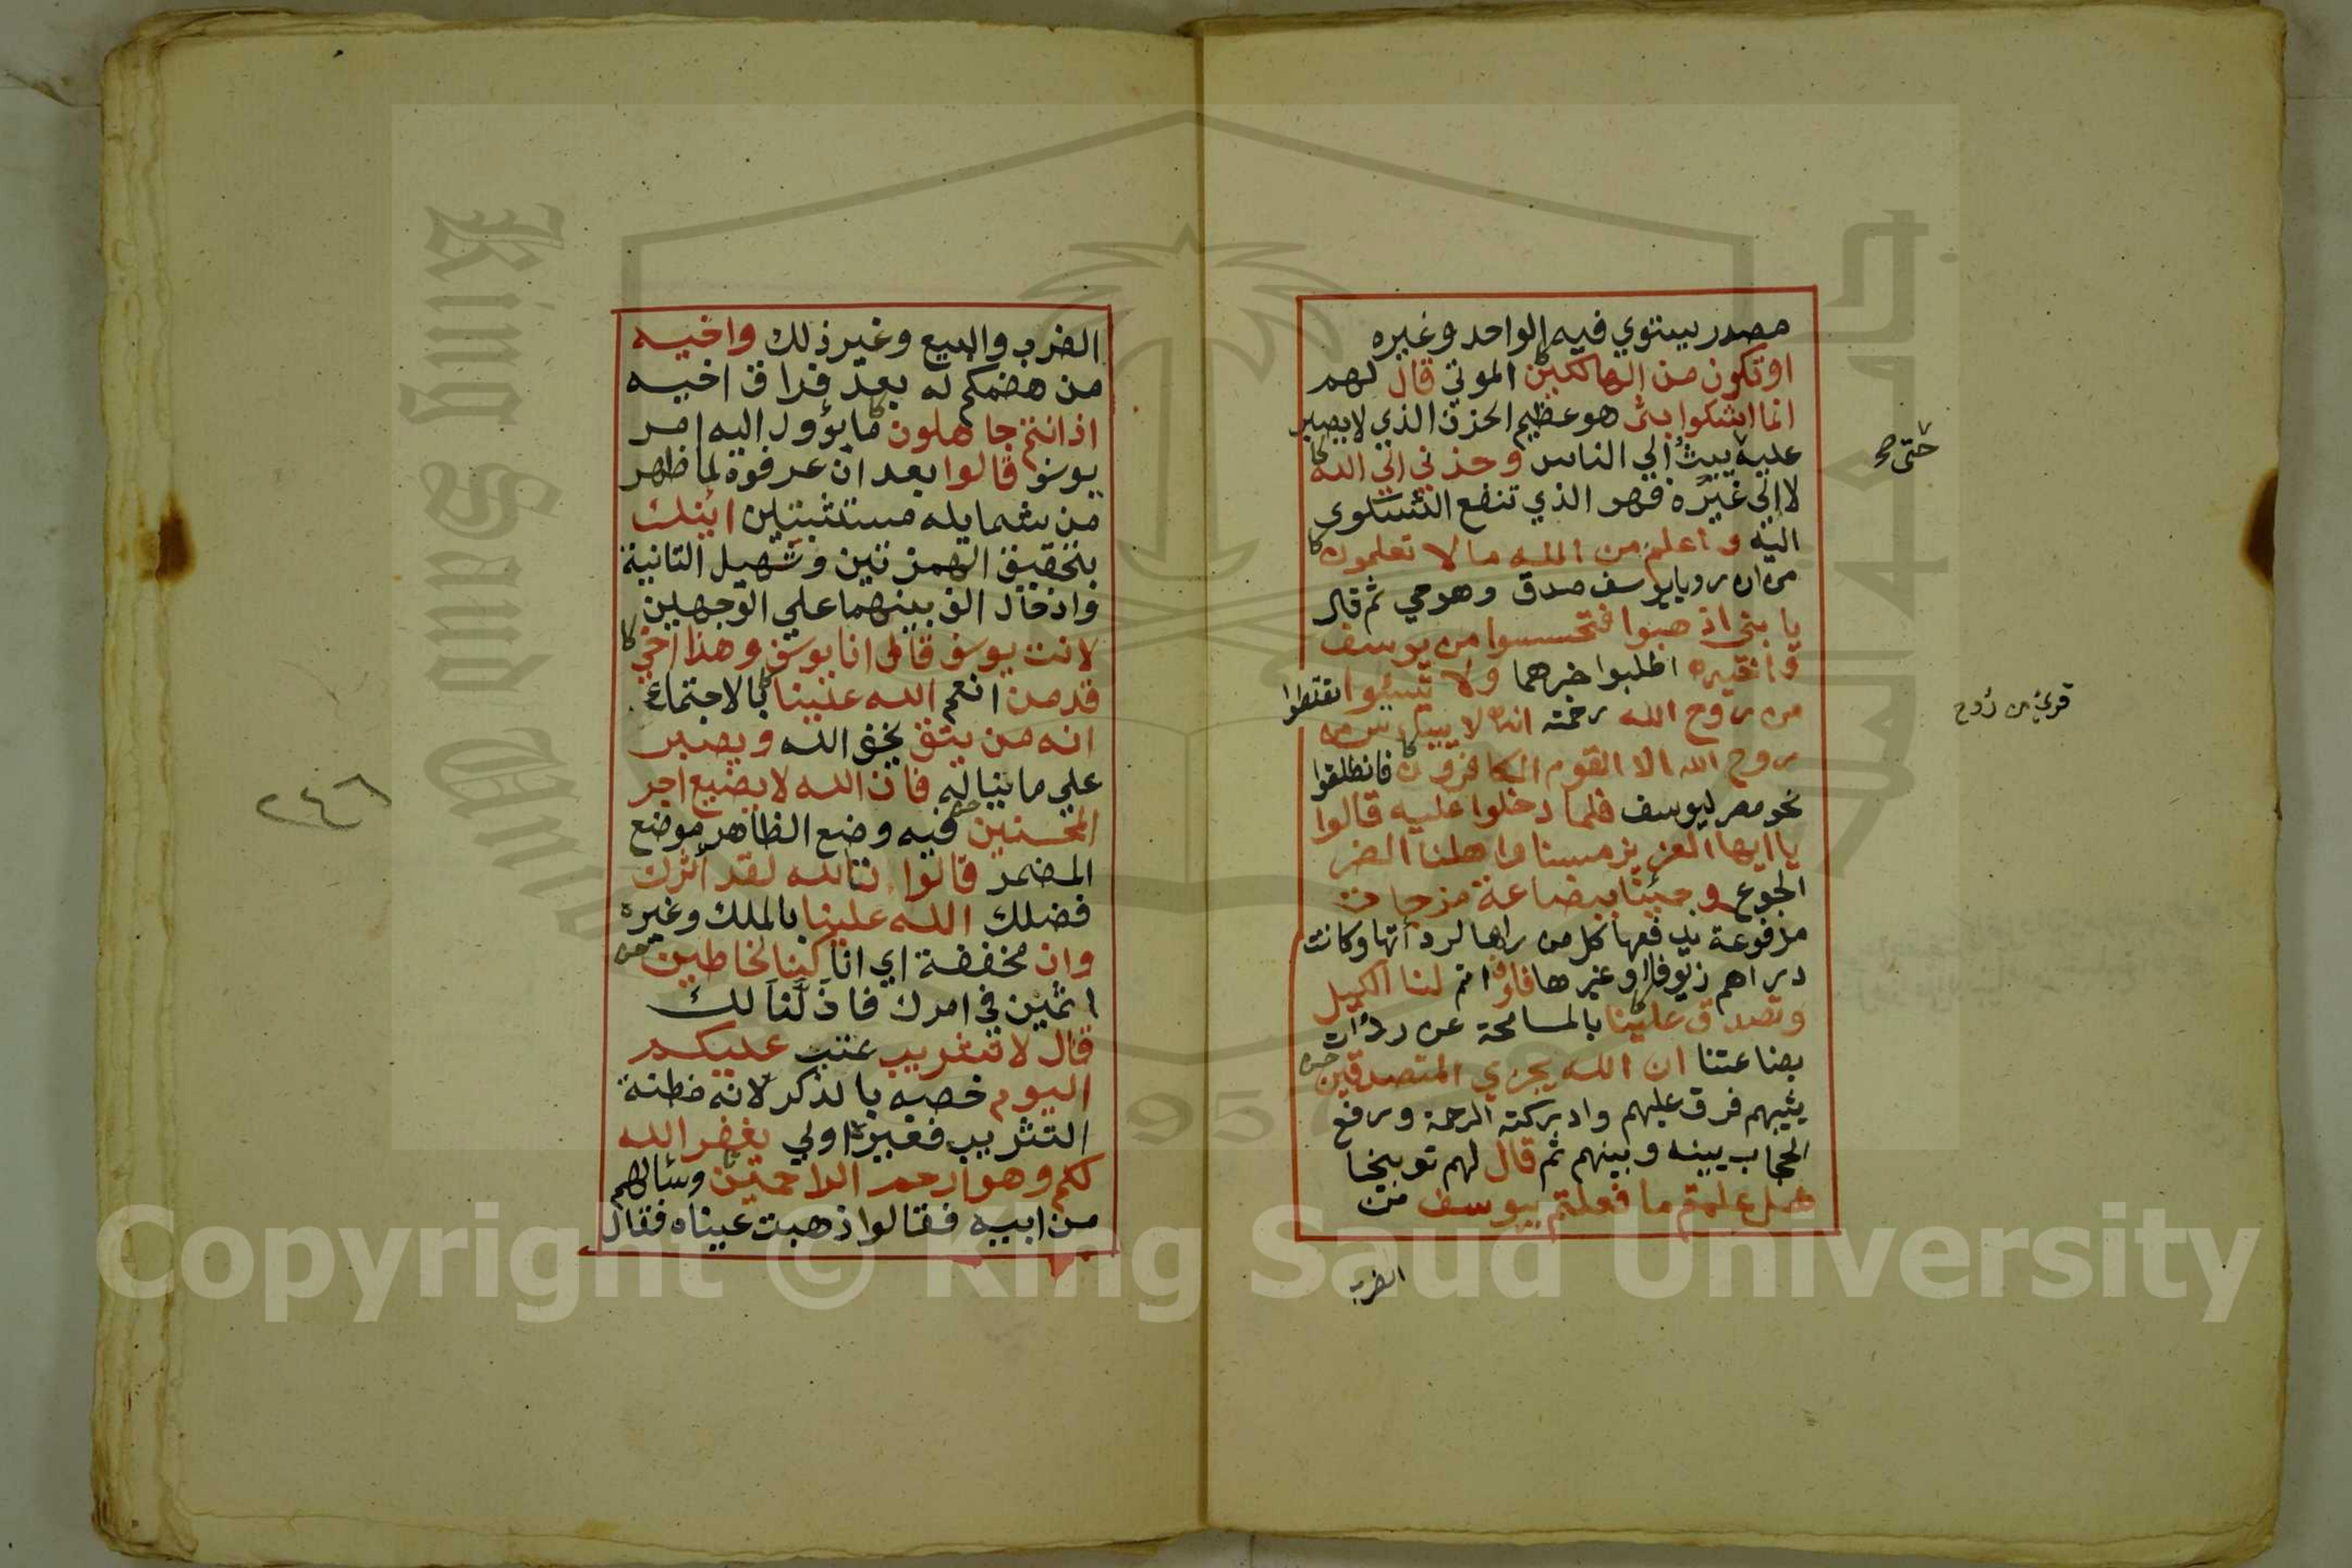 مصدر يستوي فيه الواحد وغيره
او تكون من الهالكين الموتي قال لهم
انما اشكوا بثي هو عظيم الحزن الذي لا يصبر
عليه يبث الي الناس وحزني الي الله
حتى صح
لا الي غيره فهو الذي تنفع الشكوى
اليه واعلم من الله ما لا تعلمون
من ان رويا يوسف صدق وهو حي ثم قال
يا بني اذهبوا فتحسسوا من يوسف
واخيه اطلبوا خبرهما ولا تيئسوا تقنطوا
من روح الله رحمته انه لا ييئس من
قرئ من روح
روح الله الا القوم الكافرون فانطلقوا
نحو مصر ليوسف فلما دخلوا عليه قالوا
يا ايها العزيز مسنا واهلنا الضر
الجوع وجئنا ببضاعة مزجات
مدفوعة يدفعها كل من راها لرداتها وكانت
دراهم زيوفا او غيرها فاوف اتم لنا الكيل
وتصدق علينا بالمسامحة عن ردات
بضاعتنا ان الله يجزي المتصدقين
يثيبهم فرق عليهم وادركته الرحمة ورفع
الحجاب بينه وبينهم ثم قال لهم توبيخا
هل علمتم ما فعلتم بيوسف من
الضرب
الضرب والبيع وغير ذلك واخيه
من هضمكم له بعد فراق اخيه
اذ انتم جاهلون ما يؤول اليه امر
يوسف قالوا بعد ان عرفوه لما ظهر
من شمايله مستثبتين ائنك
بتحقيق الهمزتين وتسهيل الثانية
وادخال الف بينهما علي الوجهين
لانت يوسف قال انا يوسف وهذا اخي
قد من انعم الله علينا بالاجتماع
انه من يتق يخف الله ويصبر
علي ما يناله فان الله لا يضيع اجر
المحسنين فيه وضع الظاهر موضع
المضمر قالوا تالله لقد اثرك
فضلك الله علينا بالملك وغيره
وان مخففة اي انا كنا لخاطين
اثمين في امرك فاذلنا لك
قال لا تثريب عتب عليكم
اليوم خصه بالذكر لانه مظنة
التثريب فغيره اولي يغفر الله
لكم وهو ارحم الراحمين وسالهم
من ابيه فقالوا ذهبت عيناه فقال
٢٤٦
King Saud University
1957
Copyright © King Saud University